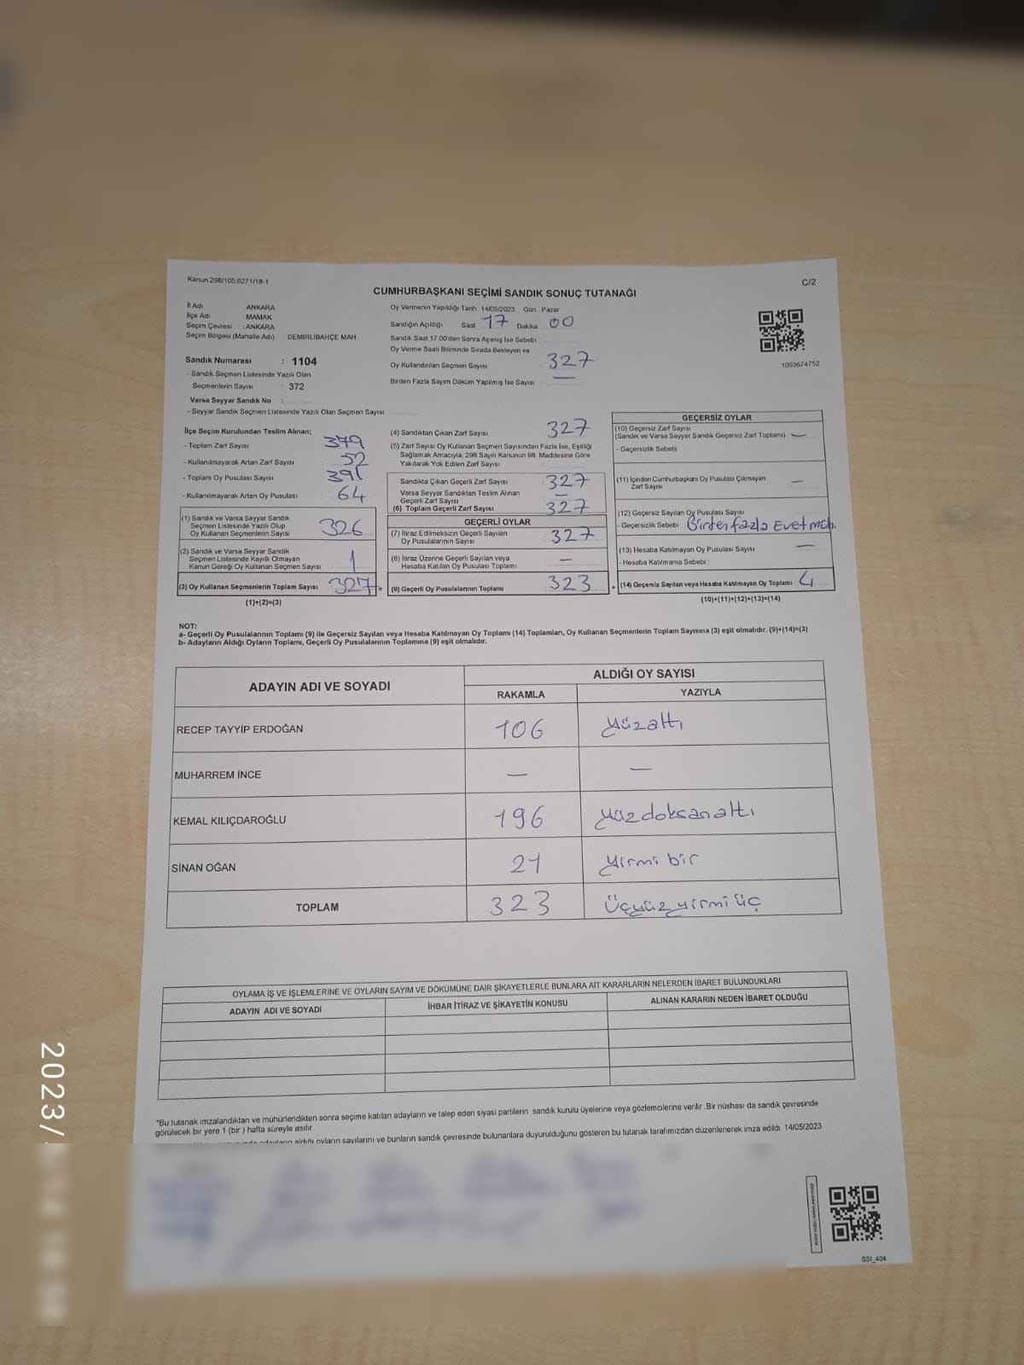 Kanun 298/105:0271/18-1
C/2
CUMHURBAŞKANI SEÇİMİ SANDIK SONUÇ TUTANAĞI
İl Adı ANKARA
İlçe Adı MAMAK
Seçim Çevresi : ANKARA
Seçim Bölgesi (Mahalle Adı) DEMİRLİBAHÇE MAH.
Sandık Numarası : 1104
- Sandık Seçmen Listesinde Yazılı Olan
Seçmenlerin Sayısı : 372
Varsa Seyyar Sandık No :
- Seyyar Sandık Seçmen Listesinde Yazılı Olan Seçmen Sayısı
Oy Vermenin Yapıldığı Tarih 14/05/2023 Gün Pazar
Sandığın Açıldığı Saat 17 Dakika 00
Sandık Saat 17.00'den Sonra Açılmış İse Sebebi
Oy Verme Saati Bitiminde Sırada Bekleyen ve
Oy Kullandırılan Seçmen Sayısı 327
Birden Fazla Sayım Döküm Yapılmış İse Sayısı —
1093674752
İlçe Seçim Kurulundan Teslim Alınan;
- Toplam Zarf Sayısı 379
- Kullanılmayarak Artan Zarf Sayısı 52
- Toplam Oy Pusulası Sayısı 391
- Kullanılmayarak Artan Oy Pusulası 64
(1) Sandık ve Varsa Seyyar Sandık
Seçmen Listesinde Yazılı Olup
Oy Kullanan Seçmenlerin Sayısı 326
(2) Sandık ve Varsa Seyyar Sandık
Seçmen Listesinde Kayıtlı Olmayan
Kanun Gereği Oy Kullanan Seçmen Sayısı 1
(3) Oy Kullanan Seçmenlerin Toplam Sayısı 327 =
(1)+(2)=(3)
(4) Sandıktan Çıkan Zarf Sayısı 327
(5) Zarf Sayısı Oy Kullanan Seçmen Sayısından Fazla İse, Eşitliği
Sağlamak Amacıyla, 298 Sayılı Kanunun 98. Maddesine Göre
Yakılarak Yok Edilen Zarf Sayısı
Sandıkta Çıkan Geçerli Zarf Sayısı 327
Varsa Seyyar Sandıktan Teslim Alınan
Geçerli Zarf Sayısı —
(6) Toplam Geçerli Zarf Sayısı 327
GEÇERLİ OYLAR
(7) İtiraz Edilmeksizin Geçerli Sayılan
Oy Pusulalarının Sayısı 327
(8) İtiraz Üzerine Geçerli Sayılan veya
Hesaba Katılan Oy Pusulası Toplamı —
(9) Geçerli Oy Pusulalarının Toplamı 323 +
GEÇERSİZ OYLAR
(10) Geçersiz Zarf Sayısı
(Sandık ve Varsa Seyyar Sandık Geçersiz Zarf Toplamı) —
- Geçersizlik Sebebi
(11) İçinden Cumhurbaşkanı Oy Pusulası Çıkmayan
Zarf Sayısı —
(12) Geçersiz Sayılan Oy Pusulası Sayısı
- Geçersizlik Sebebi Birden fazla Evet müh.
(13) Hesaba Katılmayan Oy Pusulası Sayısı —
- Hesaba Katılmama Sebebi :
(14) Geçersiz Sayılan veya Hesaba Katılmayan Oy Toplamı 4
(10)+(11)+(12)+(13)=(14)
NOT:
a- Geçerli Oy Pusulalarının Toplamı (9) ile Geçersiz Sayılan veya Hesaba Katılmayan Oy Toplamı (14) Toplamları, Oy Kullanan Seçmenlerin Toplam Sayısına (3) eşit olmalıdır. (9)+(14)=(3)
b- Adayların Aldığı Oyların Toplamı, Geçerli Oy Pusulalarının Toplamına (9) eşit olmalıdır.
ADAYIN ADI VE SOYADI ALDIĞI OY SAYISI
RAKAMLA YAZIYLA
RECEP TAYYİP ERDOĞAN 106 yüzaltı
MUHARREM İNCE — —
KEMAL KILIÇDAROĞLU 196 yüzdoksanaltı
SİNAN OĞAN 21 yirmi bir
TOPLAM 323 Üçyüzyirmiüç
OYLAMA İŞ VE İŞLEMLERİNE VE OYLARIN SAYIM VE DÖKÜMÜNE DAİR ŞİKAYETLERLE BUNLARA AİT KARARLARIN NELERDEN İBARET BULUNDUKLARI
ADAYIN ADI VE SOYADI İHBAR İTİRAZ VE ŞİKAYETİN KONUSU ALINAN KARARIN NEDEN İBARET OLDUĞU
*Bu tutanak imzalandıktan ve mühürlendikten sonra seçime katılan adayların ve talep eden siyasi partilerin sandık kurulu üyelerine veya gözlemcilerine verilir. Bir nüshası da sandık çevresinde
görülecek bir yere 1 (bir ) hafta süreyle asılır.
aldığı oyların sayılarını ve bunların sandık çevresinde bulunanlara duyurulduğunu gösteren bu tutanak tarafımızdan düzenlenerek imza edildi. 14/05/2023
GSI_404
2023/